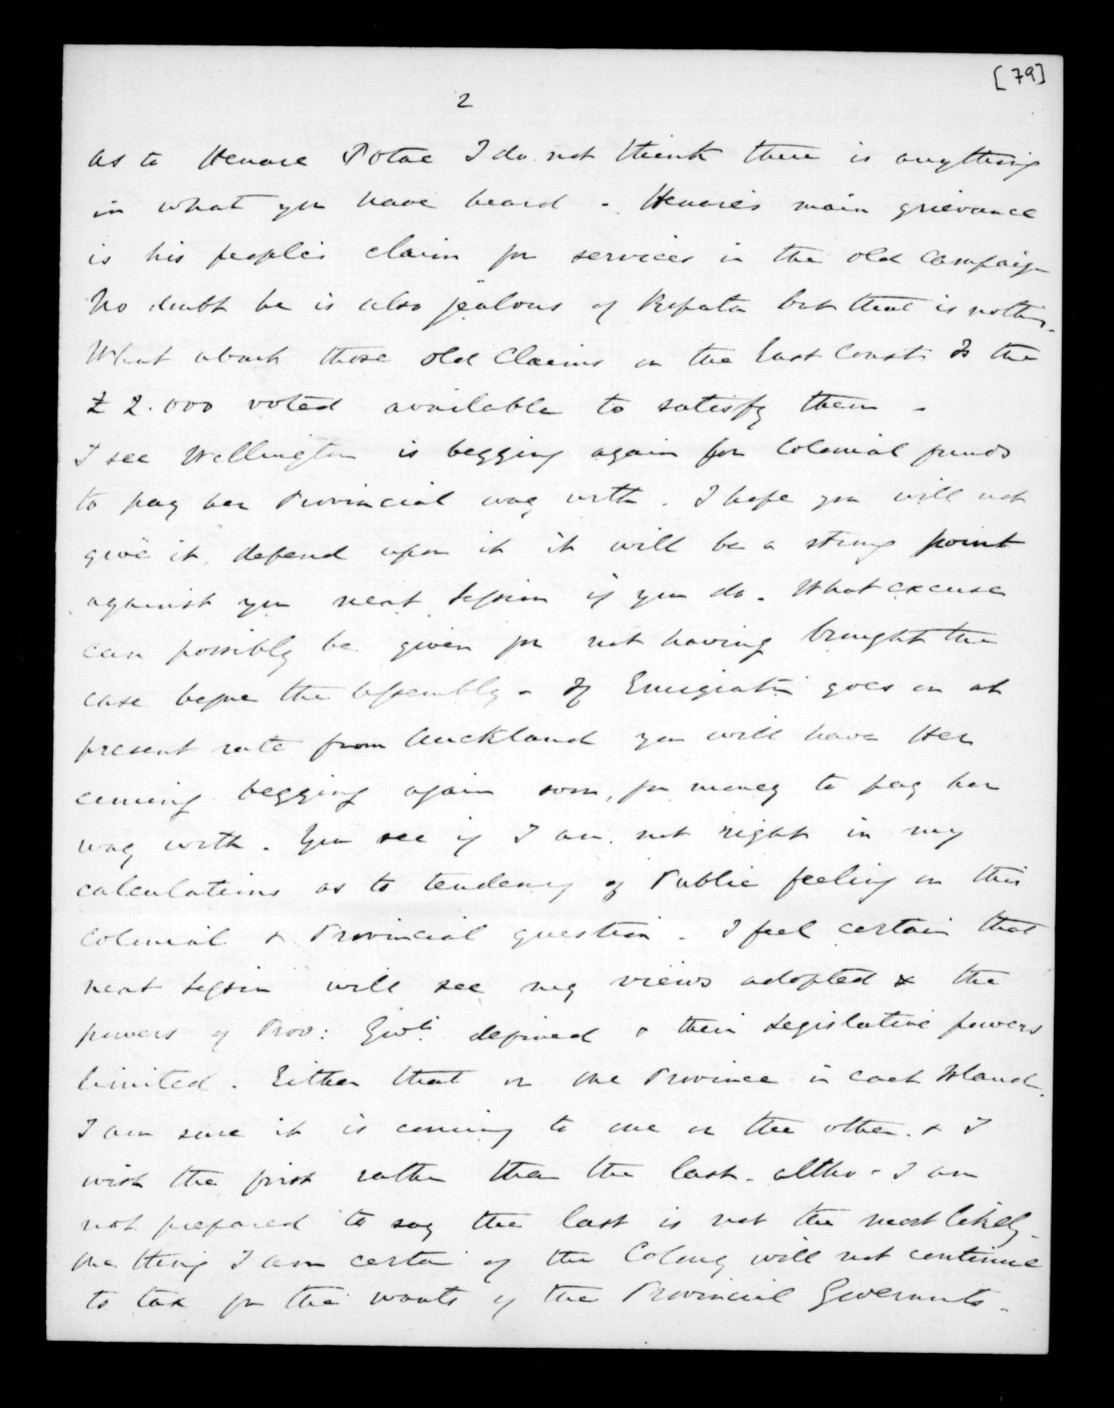 [79]
2
as to Henare Potae I do not think there is anything
in what you have heard - Henare's main grievance
is his people's claim for services in the old campaign
No doubt he is also jealous of Ropata but that is nothing.
What about those old Claims on the East Coast. Is the
£2.000 voted available to satisfy them -
I see Wellington is begging again for Colonial funds
to pay her Provincial way with. I hope you will not
give it. depend upon it it will be a strong point
against you next Session if you do. What excuse
can possibly be given for not having brought the
case before the Assembly - If Emigration goes on at
present rate from Auckland you will have Her
coming begging again soon, for money to pay her
way with. You see if I am not right in my
calculations as to tendency of Public feeling on this
Colonial & Provincial question. I feel certain that
next Session will see my views adopted & the
powers of Prov: Govts. defined & their Legislative powers
limited. Either that or one Province in each Island.
I am sure it is coming to one or the other. & I
wish the first rather than the last. altho' I am
not prepared to say the last is not the most likely.
One thing I am certain of the Colony will not continue
to tax for the wants of the Provincial Governments.